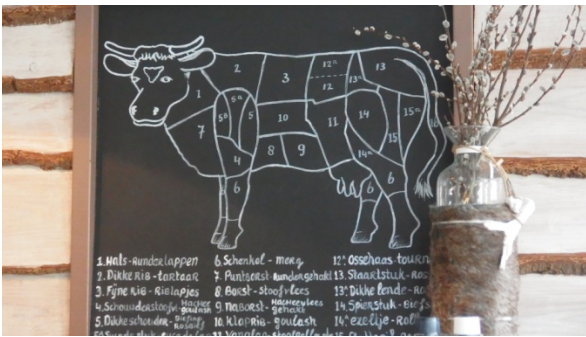 1
2
3
12ᵃ
12
13ᵃ
13
5ᵃ
5ᵃ
5
10
11
14
15ᵃ
16
7
15
4
8
9
14ᵃ
6
6
6
1. Hals - Runderlappen
2. Dikke Rib - tartaar
3. Fijne Rib - Riblapjes
4. Schouderstoofvl - Hachee goulash
5. Dikke schouder -
6. Schenkel - merg
7. Puntborst - Rundergehakt
8. Borst - Stoofvlees
9. Naborst - Hacheevlees gehakt
10. Klaprib - goulash
12ᵃ Ossehaas - tourn
13. Staartstuk - Ros
13ᵃ Dikke lende - Ro
14. Spierstuk - Biefs
14ᵃ ezeltje - Roll